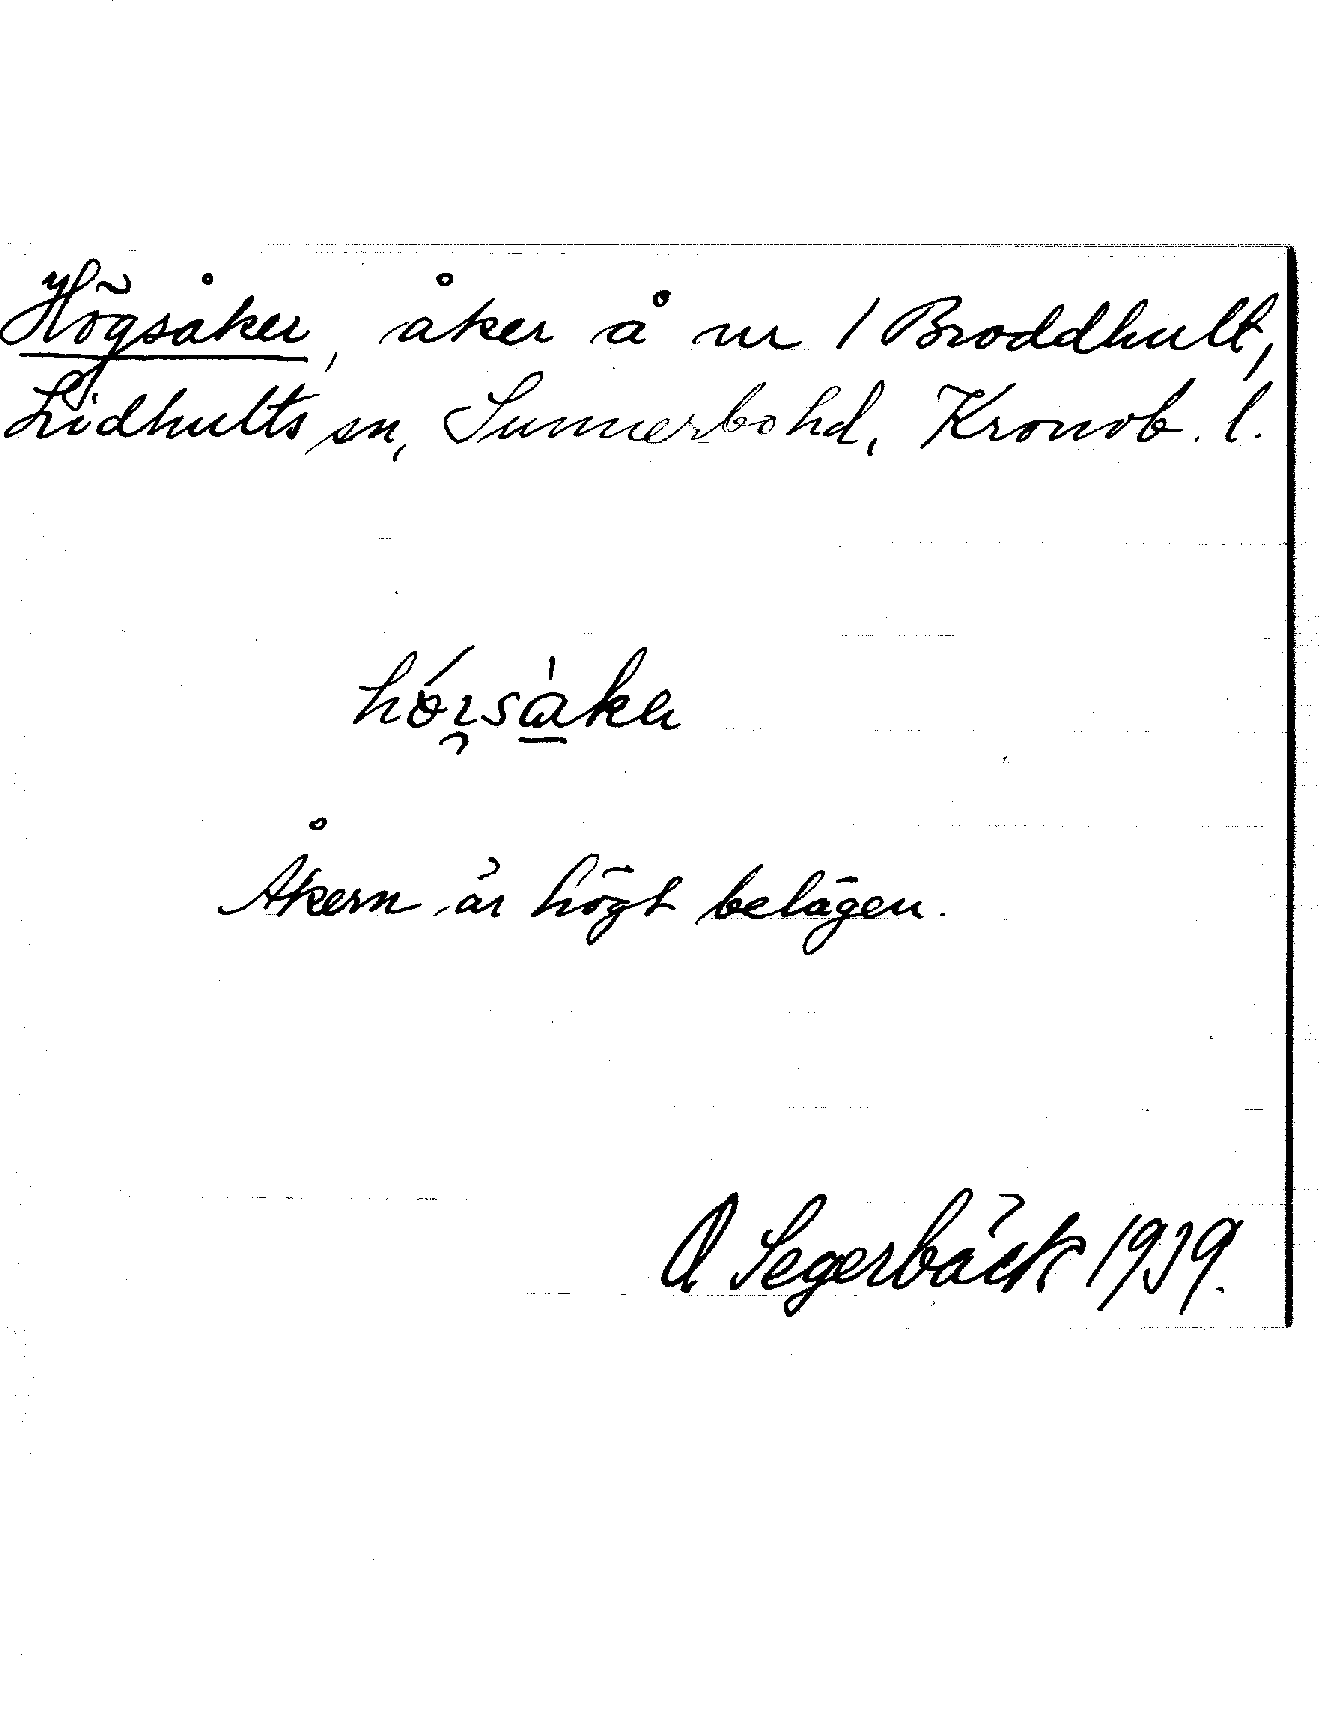 Högsåker, åker å nr 1 Broddhult,
Lidhults sn, Sunnerbo hd, Kronob. l.
Åkern är högt belägen.
A Segerbäck 1939.